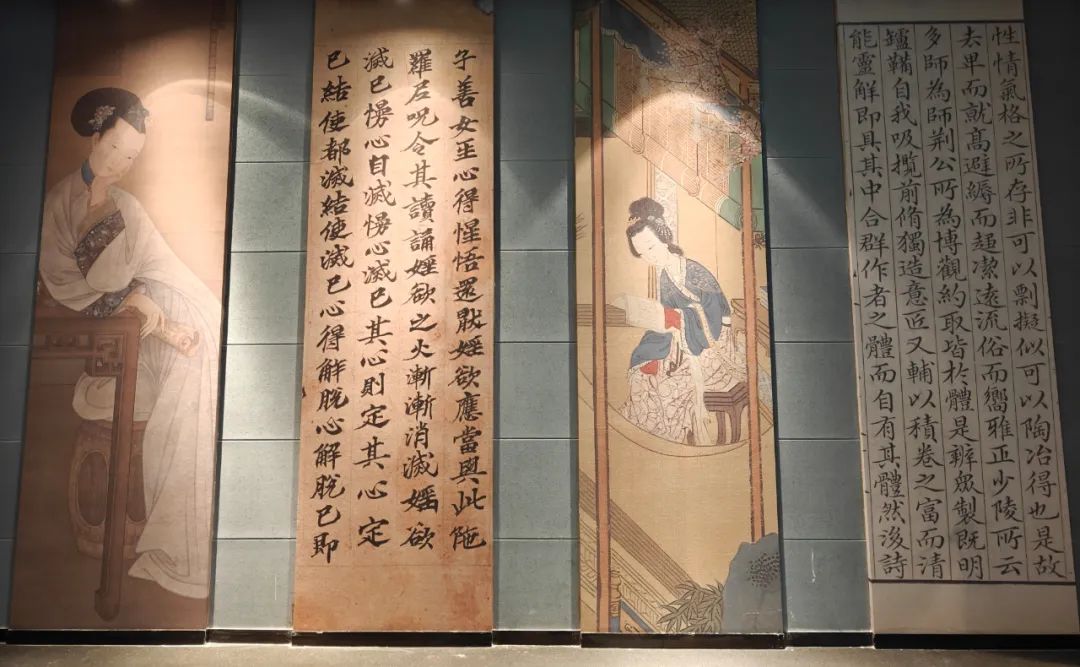 性情氣格之所存非可以剽擬似可以陶冶得也是故
去卑而就高避縟而趨潔遠流俗而嚮雅正少陵所云
多師為師荊公所為博觀約取皆於體是辨眾製既明
鑪鞴自我吸攬前脩獨造意匠又輔以積卷之富而清
能靈解即具其中合群作者之體而自有其體然後詩
子善女至心得惺悟還猒婬欲應當與此陁
羅尼呪令其讀誦婬欲之火漸漸消滅婬欲
滅已慢心自滅慢心滅已其心則定其心定
已結使都滅結使滅已心得解脫心解脫已即